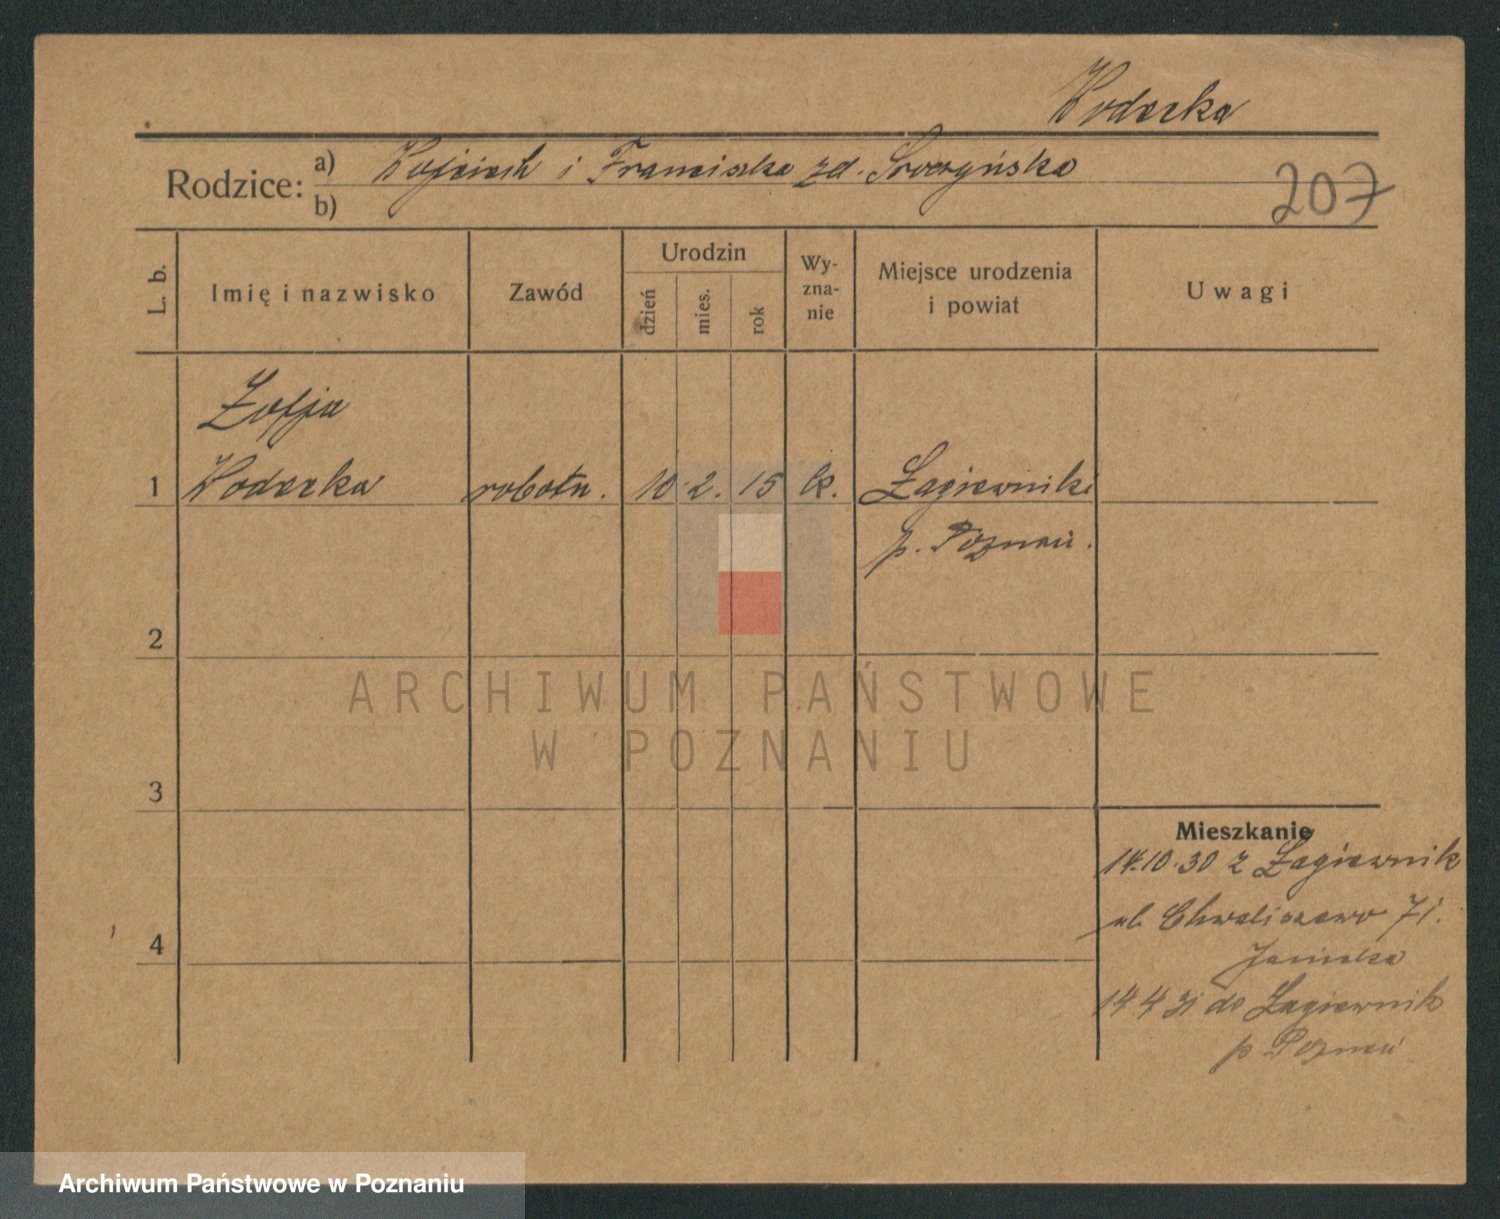 Wodecka
Rodzice: a) Wojciech i Franciszka zd.
b)
207
L. b.
Imię i nazwisko
Zawód
Urodzin
dzień
mies.
rok
Wy-
zna-
nie
Miejsce urodzenia
i powiat
Uwagi
Zofja
1 Wodecka robotn. 10. 2. 15 k. Łagiewniki
p. Poznań.
2
ARCHIWUM PAŃSTWOWE
W POZNANIU
3
Mieszkanie
14.10.30 z Łagiewnik
ul. Chwaliszewo 71.
4
14 4 31 do Łagiewnik
p Poznań
Archiwum Państwowe w Poznaniu